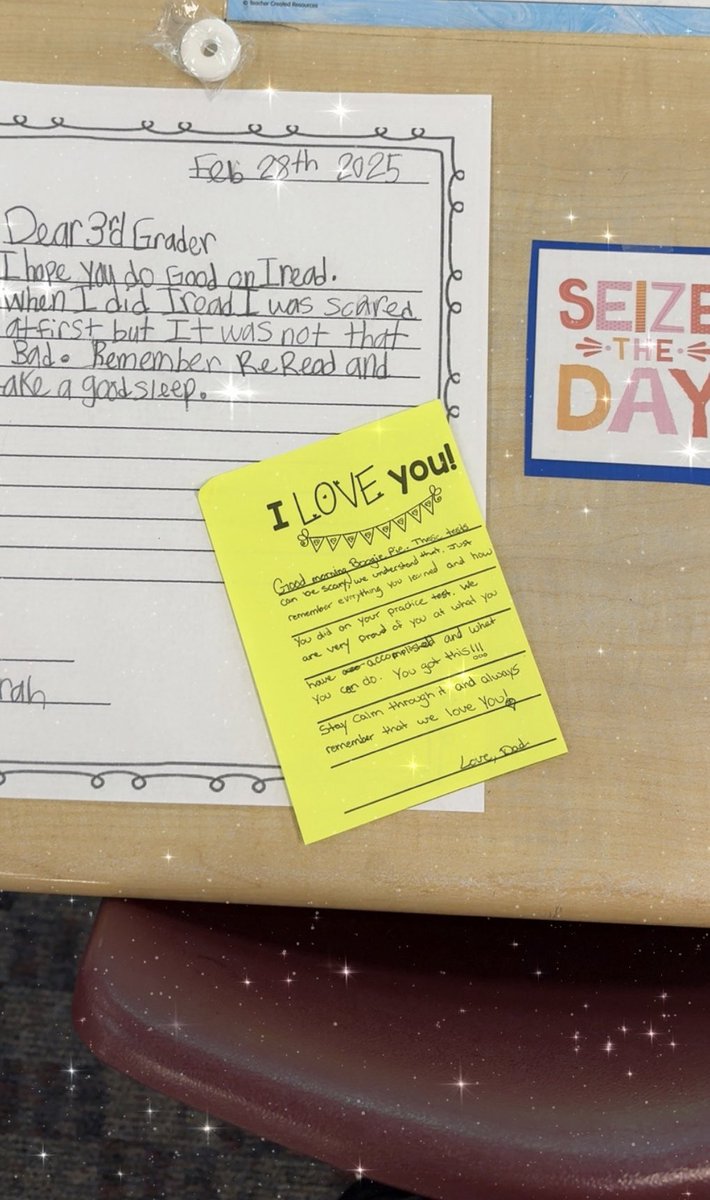 © Teacher Created Resources
Feb 28th 2025
Dear 3rd Grader
I hope you do Good on Iread.
when I did Iread I was scared
atfirst but It was not that
Bad. Remember ReRead and
ake a good sleep.
nah
SEIZE
THE
DAY
I LOVE you!
Good morning Boogie Pie. These tests
can be scary, we understand that. Just
remember everything you learned and how
you did on your practice test. We
are very proud of you at what you
have accomplished and what
you can do. You got this!!!
Stay calm through it and always
remember that we love you!
Love, Dad